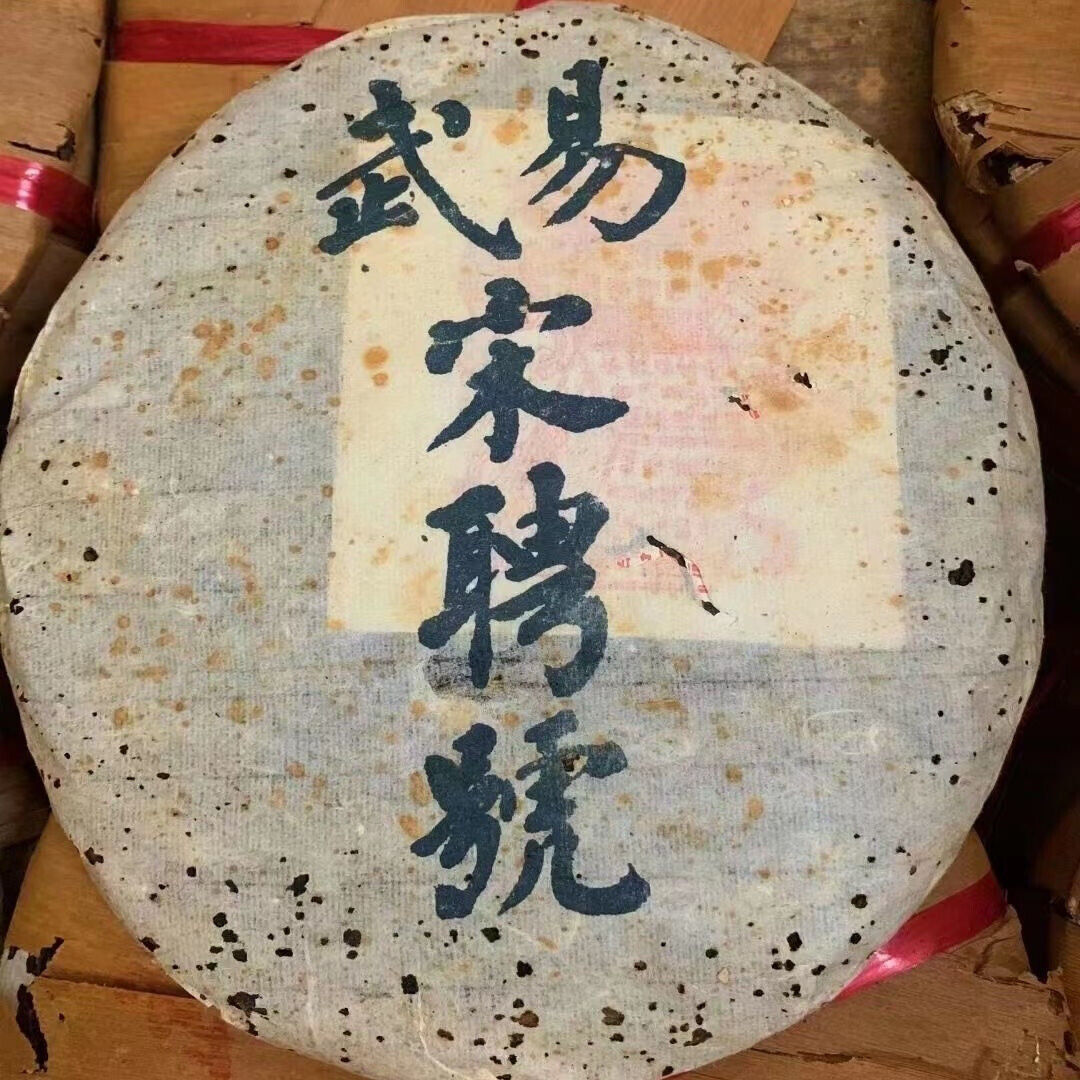 易武
宋聘號